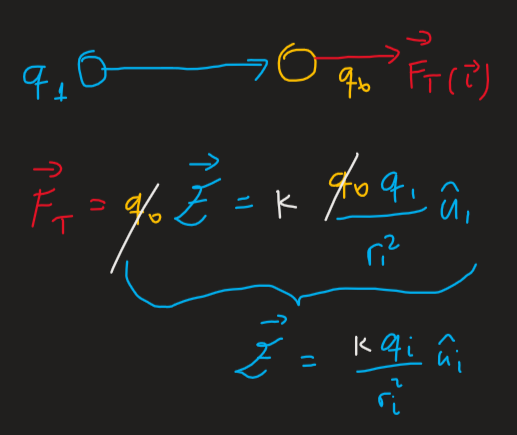 q₁ q₀ F⃗_T(i⃗)
F⃗_T = q₀ E⃗ = K q₀ q₁ / r₁² û₁
E⃗ = K qᵢ / rᵢ² ûᵢ